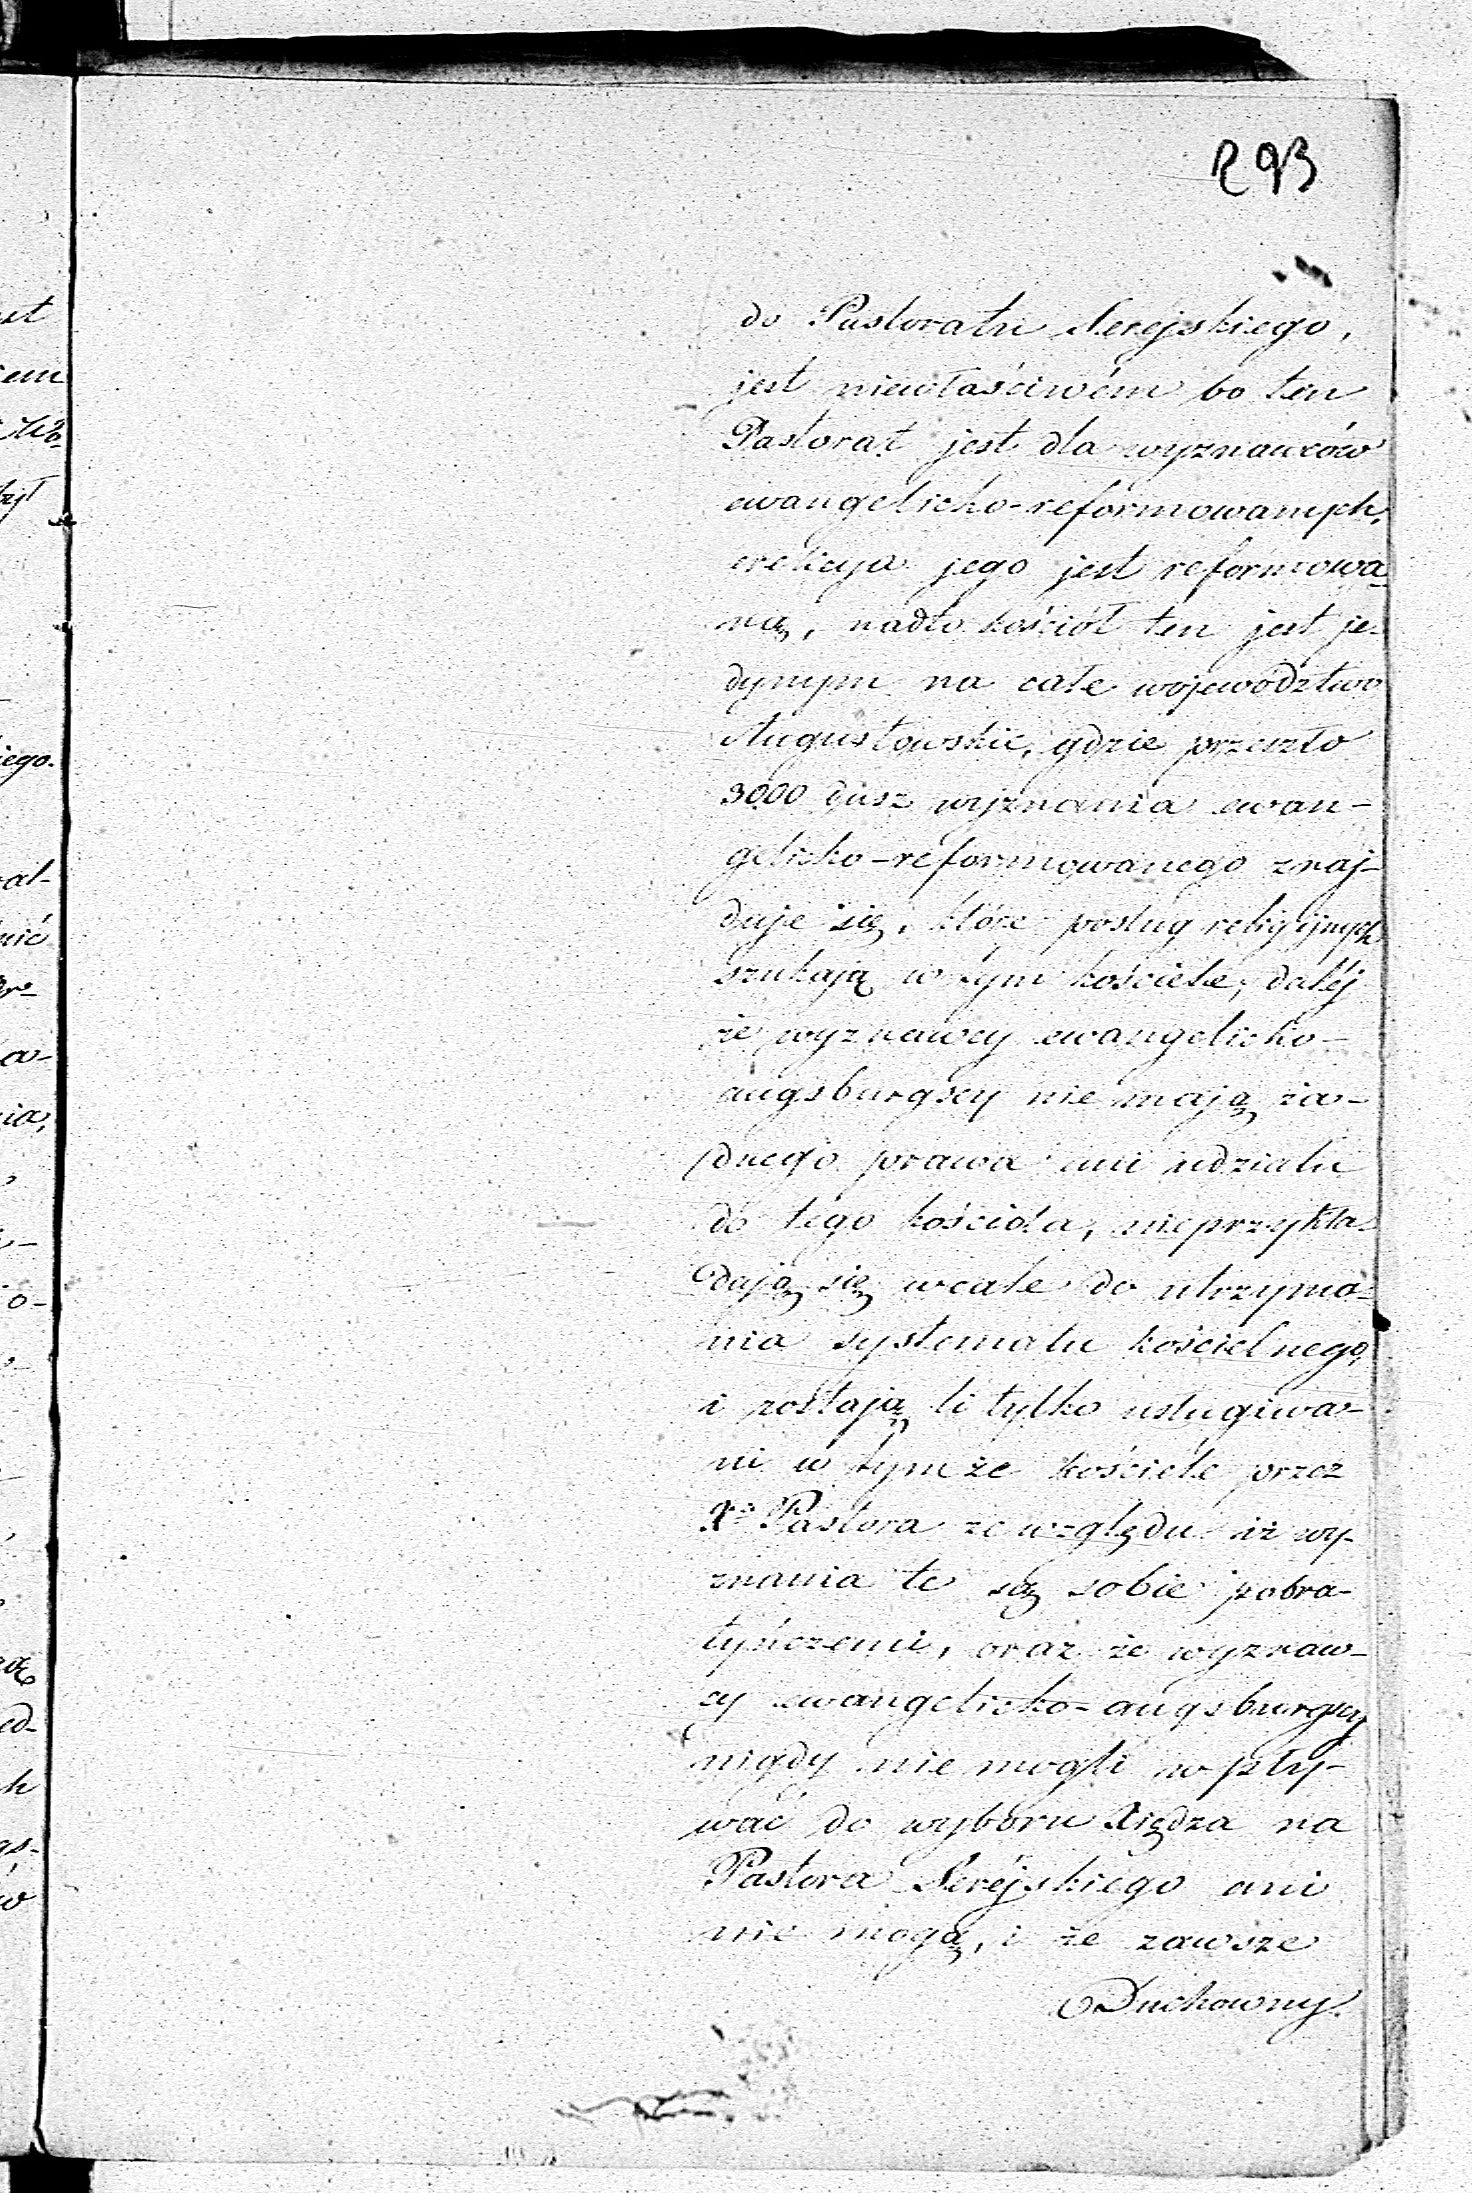 293
do Pastoratu Serejskiego,
jest niewłaściwém bo ten
Pastorat jest dla wyznawców
ewangelicko-reformowanych,
erekcya jego jest reformowa-
ną, nadto kościół ten jest je-
dynym na całe województwo
Augustowskie, gdzie przeszło
3000 dusz wyznania ewan-
gelicko-reformowanego znaj-
duje się, które posług religijnych
szukają w tym kościele, daléj
że wyznawcy ewangelicko-
augsburgscy nie mają ża-
dnego prawa ani udziału
do tego kościoła, nieprzykła-
dają się wcale do utrzyma-
nia systematu kościelnego,
i zostają li tylko usługiwa-
ni w tymże kościele przez
Xa Pastora ze względu iż wy-
znania te są sobie pobra-
tyńczemi, oraz że wyznaw-
cy ewangelicko-augsburgscy
nigdy nie mogli wpły-
wać do wyboru Xiędza na
Pastora Seréjskiego ani
nie mogą, i że zawsze
Duchowny